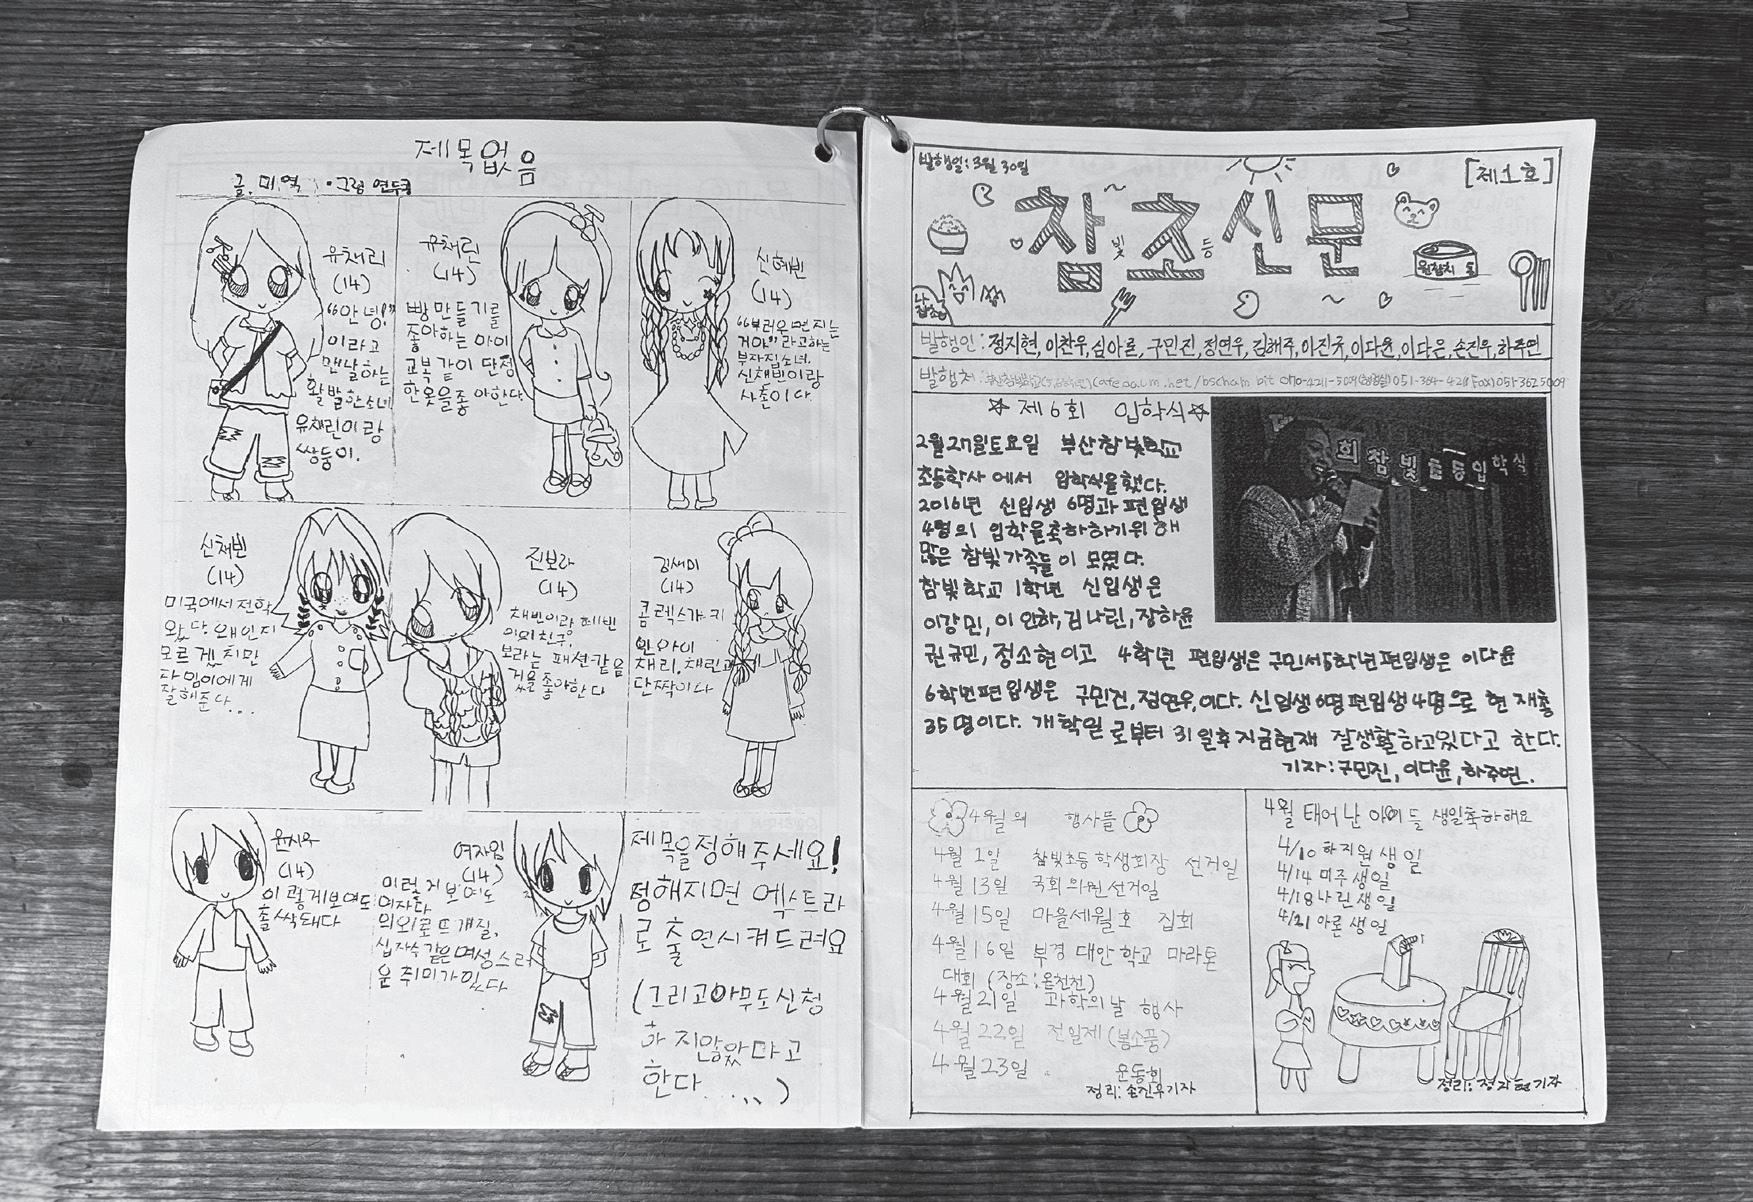 제목없음
글. 미역 · 그림 연두콩
유채리
(14)
"안녕!"
이라고
맨날하는
활발한소녀
유채린이랑
쌍둥이.
유채린
(14)
빵만들기를
좋아하는 아이
교복같이 단정
한옷을좋아한다
신혜빈
(14)
"부러우면 지는
거야" 라고하는
부자집소녀.
신채빈이랑
사촌이다.
신채빈
(14)
미국에서 전학
왔다. 왜인지
모르겠지만
다밈이에게
잘해준다...
진보라
(14)
채빈이랑 혜빈
이의친구.
보라는 패션같은
거을좋아한다
김새미
(14)
콤렉스가 키
인아이
채리, 채린과
단짝이다
윤시우
(14)
이렇게보여도
출싹돼다
여자임
(14)
이렇게보여도
여자다
의외로뜨개질,
십자수같은여성스러
운취미가있다
제목을정해주세요!
정해지면 엑스트라
로 출연시켜드려요
(그리고아무도신청
하지않았다고
한다......)
발행일: 3월 30일
[제1호]
참빛초등신문
원참치
발행인: 정지현, 이찬우, 심아론, 구민진, 정연우, 김해주, 이진국, 이다윤, 이다은, 손진우, 하주연
발행처: cafe.daum.net/bschambit
☆제6회 입학식☆
2월27일토요일 부산참빛학교
초등학사에서 입학식을했다.
2016년 신입생 6명과 편입생
4명의 입학을축하하기위해
많은 참빛가족들이 모였다.
참빛학교 1학년 신입생은
이강민, 이인하, 김나린, 장하윤
권규민, 정소현이고 4학년 편입생은 구민서5학년편입생은 이다윤
6학년편입생은 구민진, 정연우, 이다. 신입생6명편입생4명으로 현재총
35명이다. 개학일로부터 31일후지금현재 잘생활하고있다고 한다.
기자: 구민진, 이다윤, 하주연.
회참빛초등입학식
4월의 행사들
4월 1일 참빛초등 학생회장 선거일
4월 13일 국회의원선거일
4월15일 마을세월호 집회
4월16일 부경 대안학교 마라톤
대회 (장소: 온천천)
4월21일 과학의날 행사
4월 22일 전일제(봄소풍)
4월23일 운동회
정리: 손진우기자
4월 태어난 아이들 생일축하해요
4/10 하지원 생일
4/14 미주 생일
4/18 나린생일
4/21 아론 생일
정리: 정지현기자